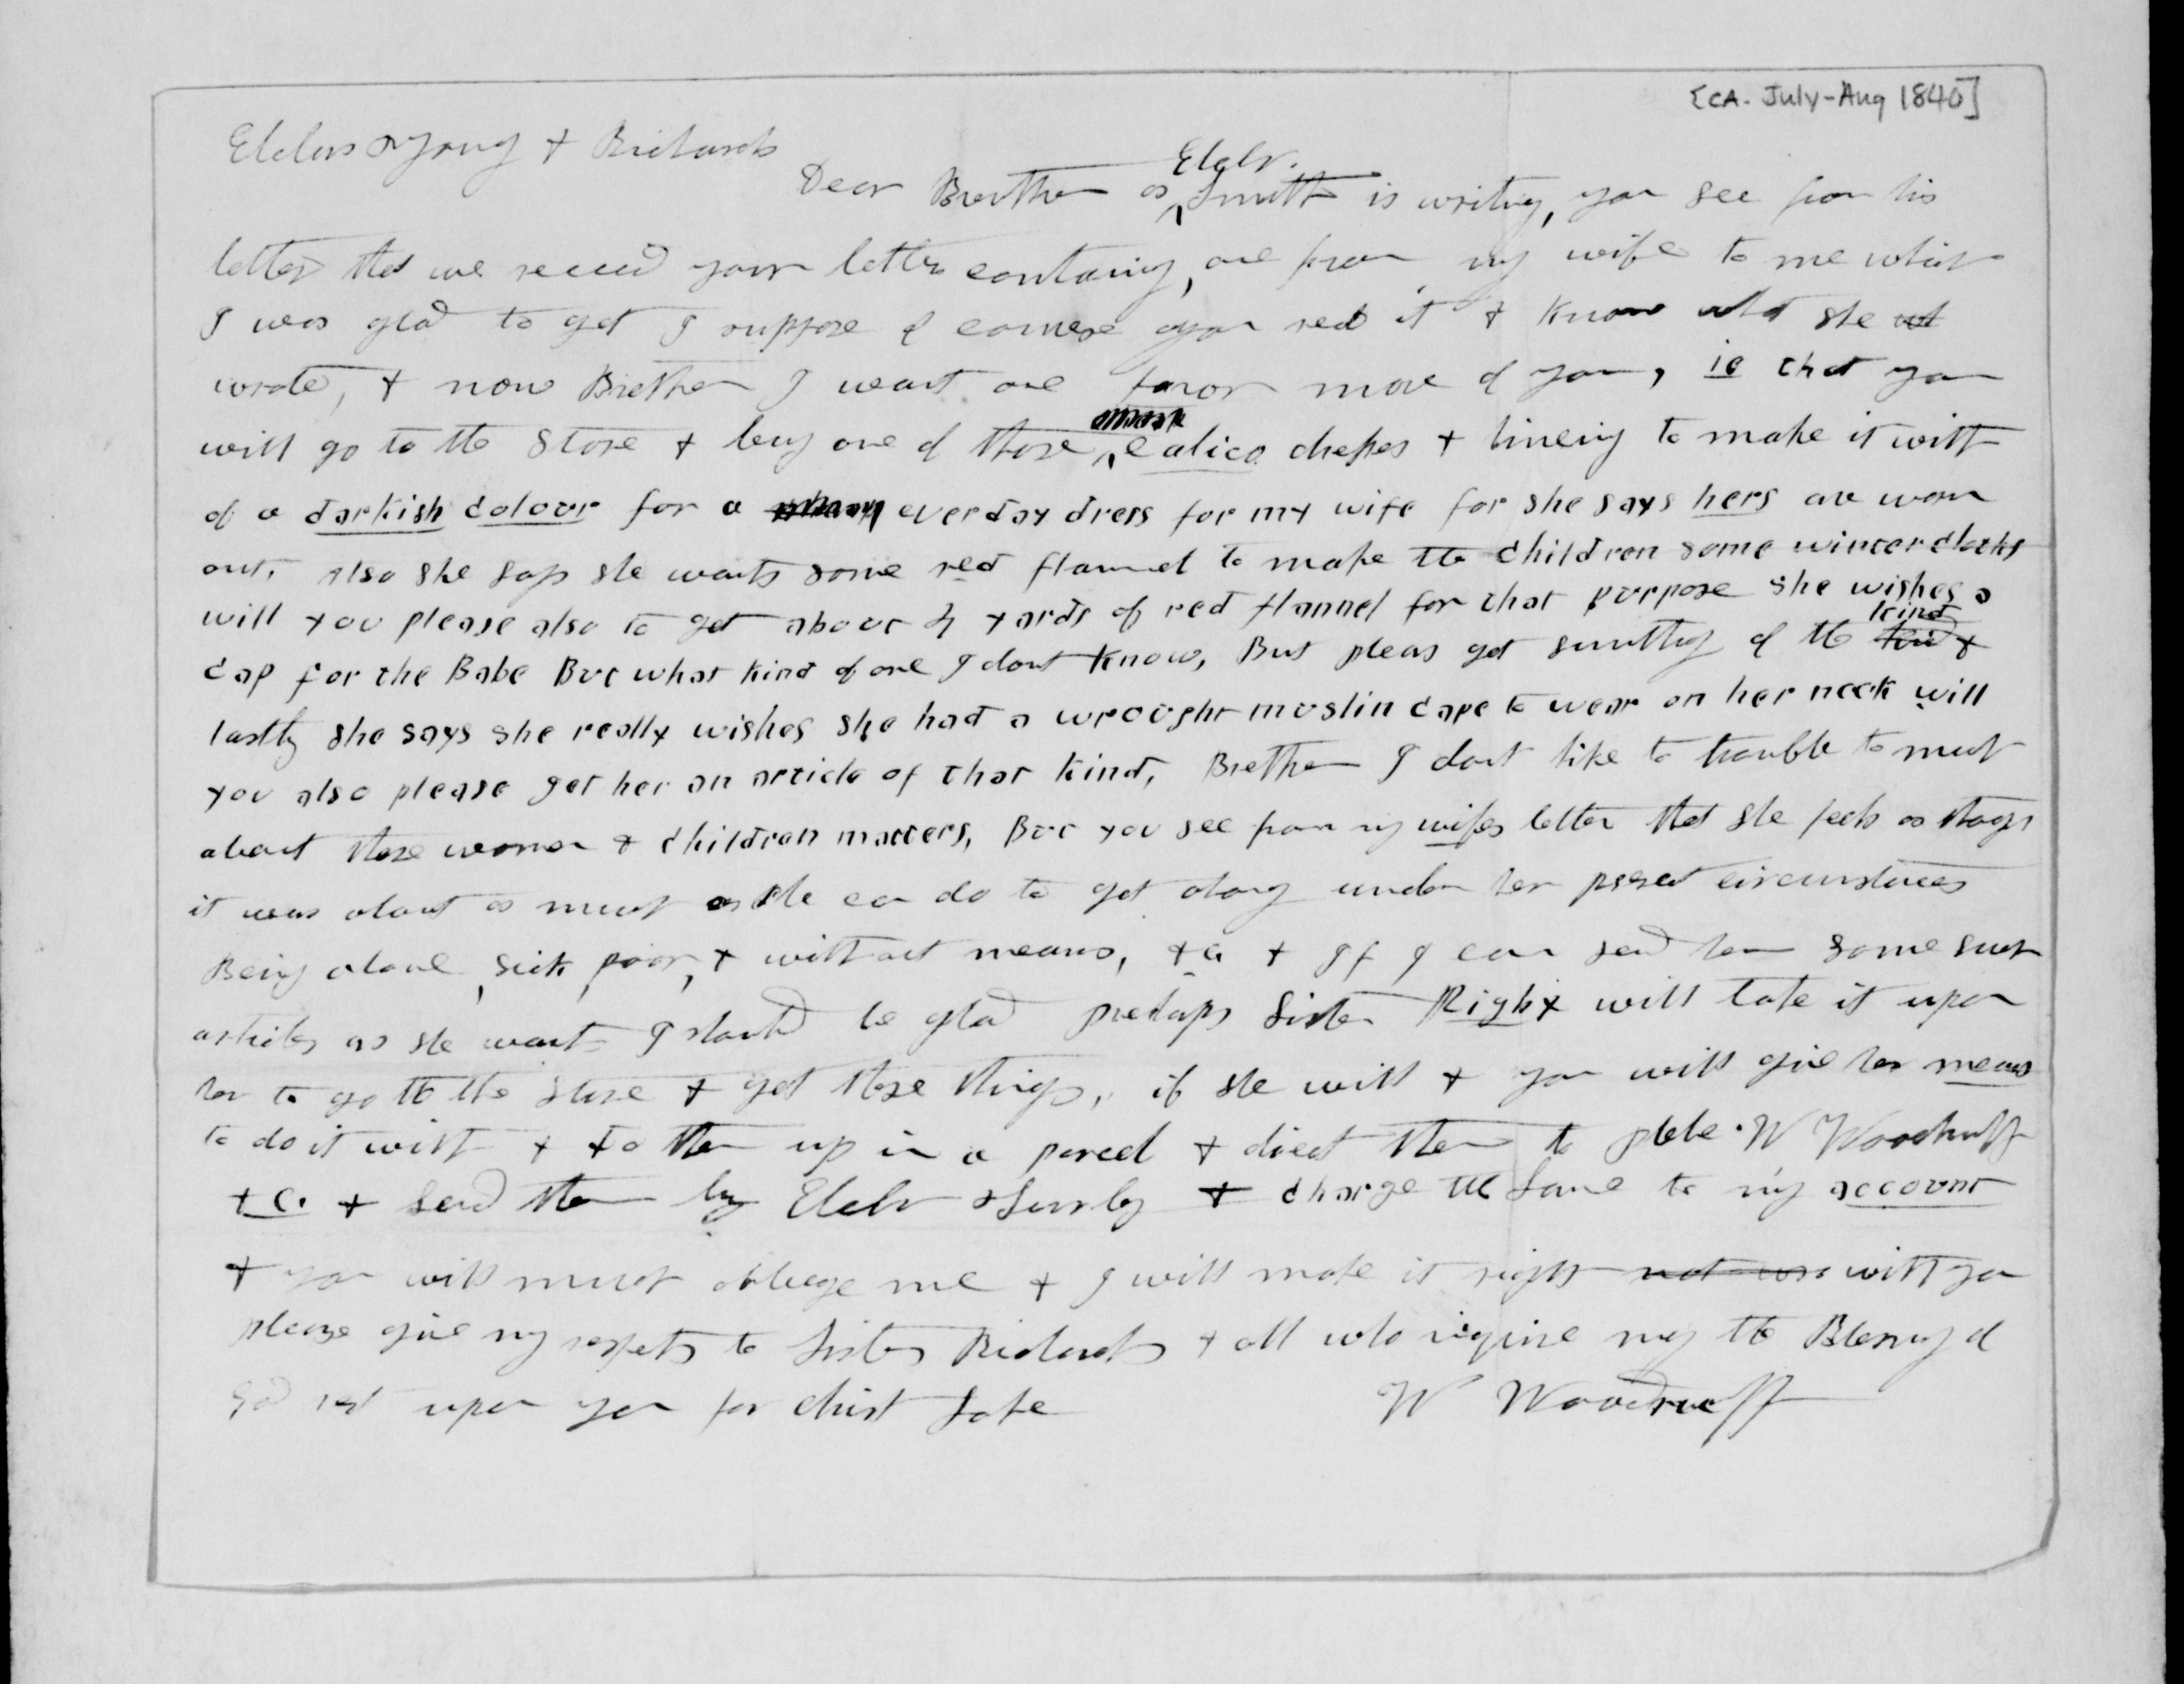 [CA. July-Aug 1840]
Elders Young & Richards
Elder
Dear Brethren as Smith is writing, you see from his
letter that we received your letter containing, one from my wife to me which
I was glad to get I suppose of course you red it & know what she
wrote, & now Brethren I want one favor more of you, ie that you
will go to the Store & buy one of those calico dresses & lineing to make it with
of a darkish colour for a everday dress for my wife for she says hers are worn
out, also she says she wants some red flannel to make the children some winter cloths
will you please also to get about 4 yards of red flannel for that purpose she wishes a
kind
cap for the Babe But what kind of one I dont know, But pleas get sumthing of the &
lastly she says she really wishes she had a wrought muslin cape to wear on her neck will
you also please get her an article of that kind, Brethren I dont like to trouble to much
about these women & children matters, But you see from my wifes letter that she feels as though
it was about as much as she can do to get along under her present circumstances
Being alone, sick, poor, & without means, &c & If I can send her some such
articles as she wants I should be glad perhaps Sister Right will take it upon
her to go to the Store & get these things, if she will & you will give her means
to do it with & do them up in a parcel & direct them to W Woodruff
&c. & send them by Elder & charge the same to my account
& you will much obliege me & I will make it right with you
please give my respects to Sister Richards & all who inquire may the Blessing of
God rest upon you for Christ sake
W Woodruff